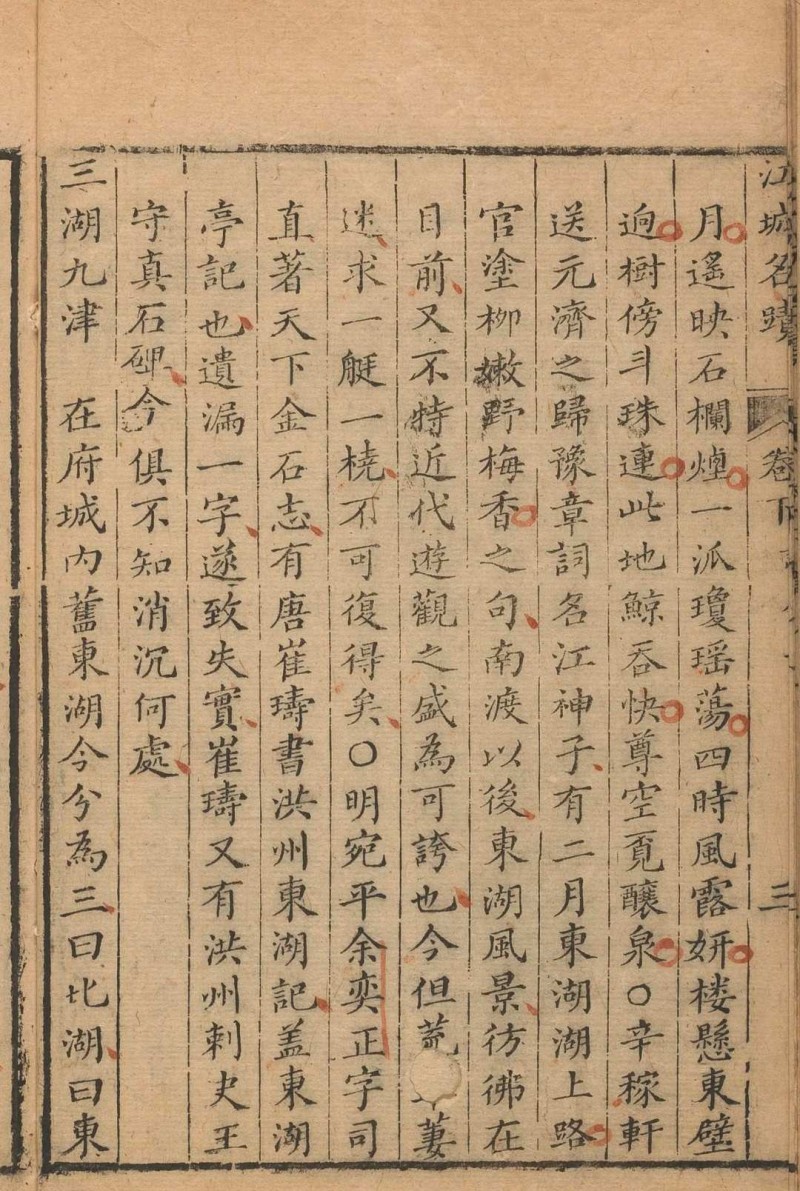 江城名蹟 卷下 三
月遙映石欄煙一派瓊瑶蕩四時風露妍楼懸東壁
逈樹傍斗珠連此地鯨吞快尊空覔釀泉〇辛稼軒
送元濟之歸豫章詞名江神子有二月東湖湖上路
官塗柳嫩野梅香之句南渡以後東湖風景彷彿在
目前又不特近代遊觀之盛為可誇也今但荒萋
迷求一艇一橈不可復得矣〇明宛平余奕正字司
直著天下金石志有唐崔璹書洪州東湖記盖東湖
亭記也遺漏一字遂致失實崔璹又有洪州刺史王
守真石碑今俱不知消沉何處
三湖九津 在府城内舊東湖今分為三曰北湖曰東